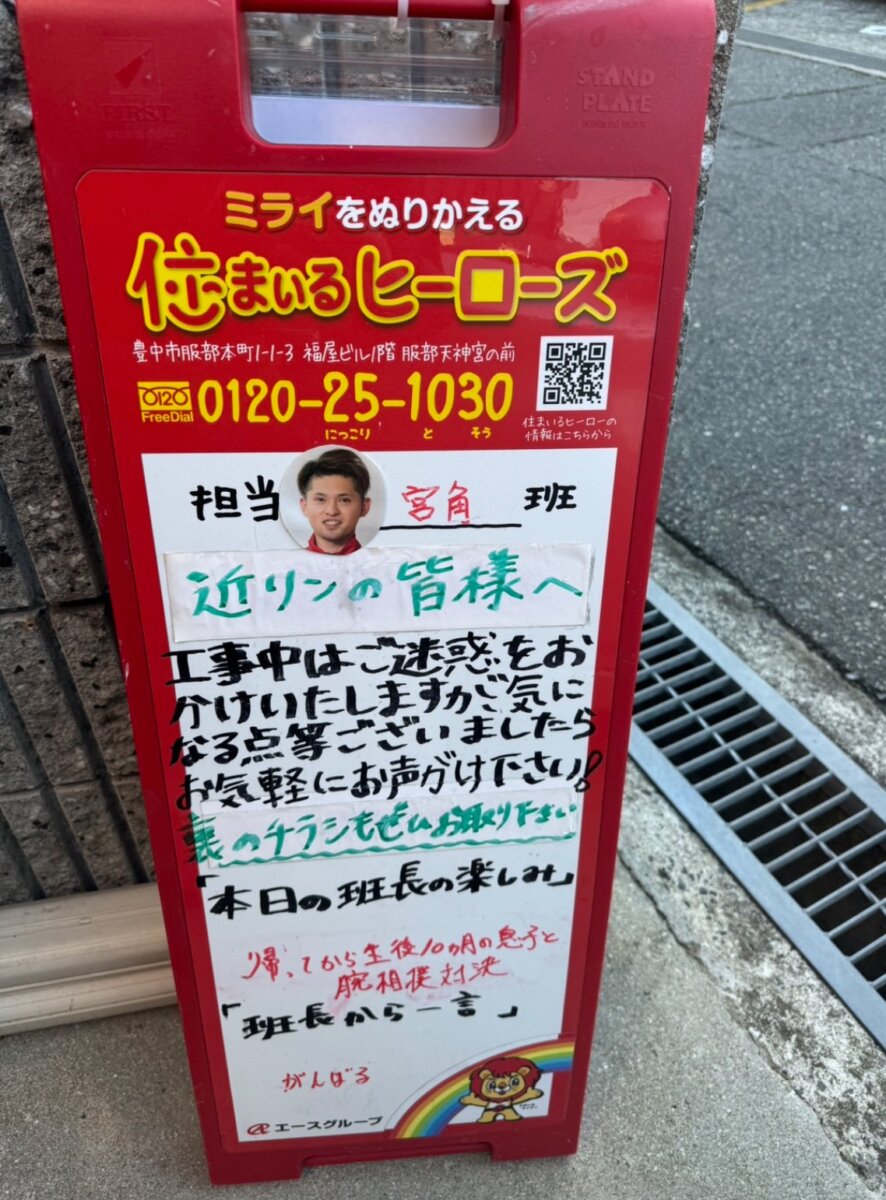 FIRST
STAND
PLATE
ミライをぬりかえる
住まいるヒーローズ
豊中市服部本町1-1-3 福屋ビル1階 服部天神宮の前
0120
FreeDial
0120-25-1030
にっこり と そう
住まいるヒーローの
情報はこちらから
担当 宮角 班
近リンの皆様へ
工事中はご迷惑をお
かけいたしますがご気に
なる点等ございましたら
お気軽にお声がけ下さい!
裏のチラシもぜひお取り下さい
「本日の班長の楽しみ」
帰ってから生後10ヵ月の息子と
腕相撲対決
「班長から一言」
がんばる
エースグループ